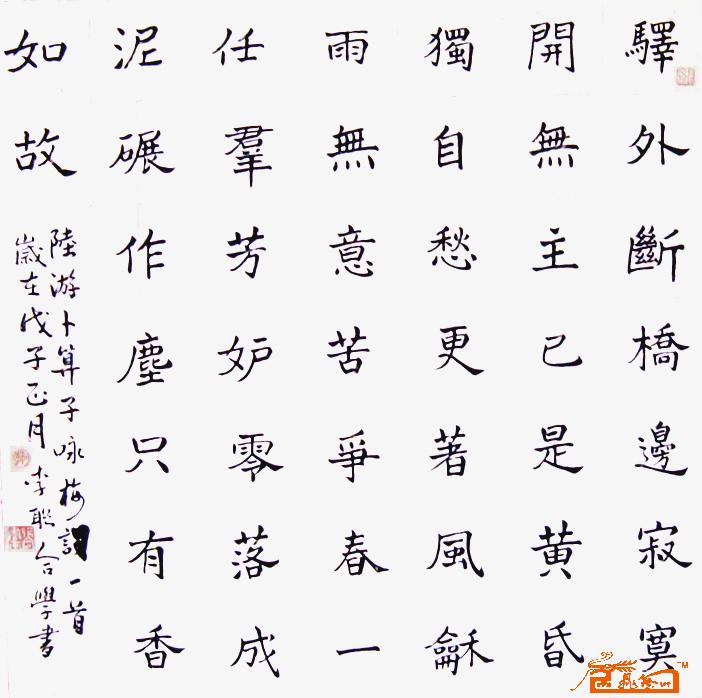 驛外斷橋邊寂寞
開無主已是黃昏
獨自愁更著風龢
雨無意苦爭春一
任羣芳妒零落成
泥碾作塵只有香
如故
陸游卜算子咏梅詞一首
歲在戊子正月李聯合學書